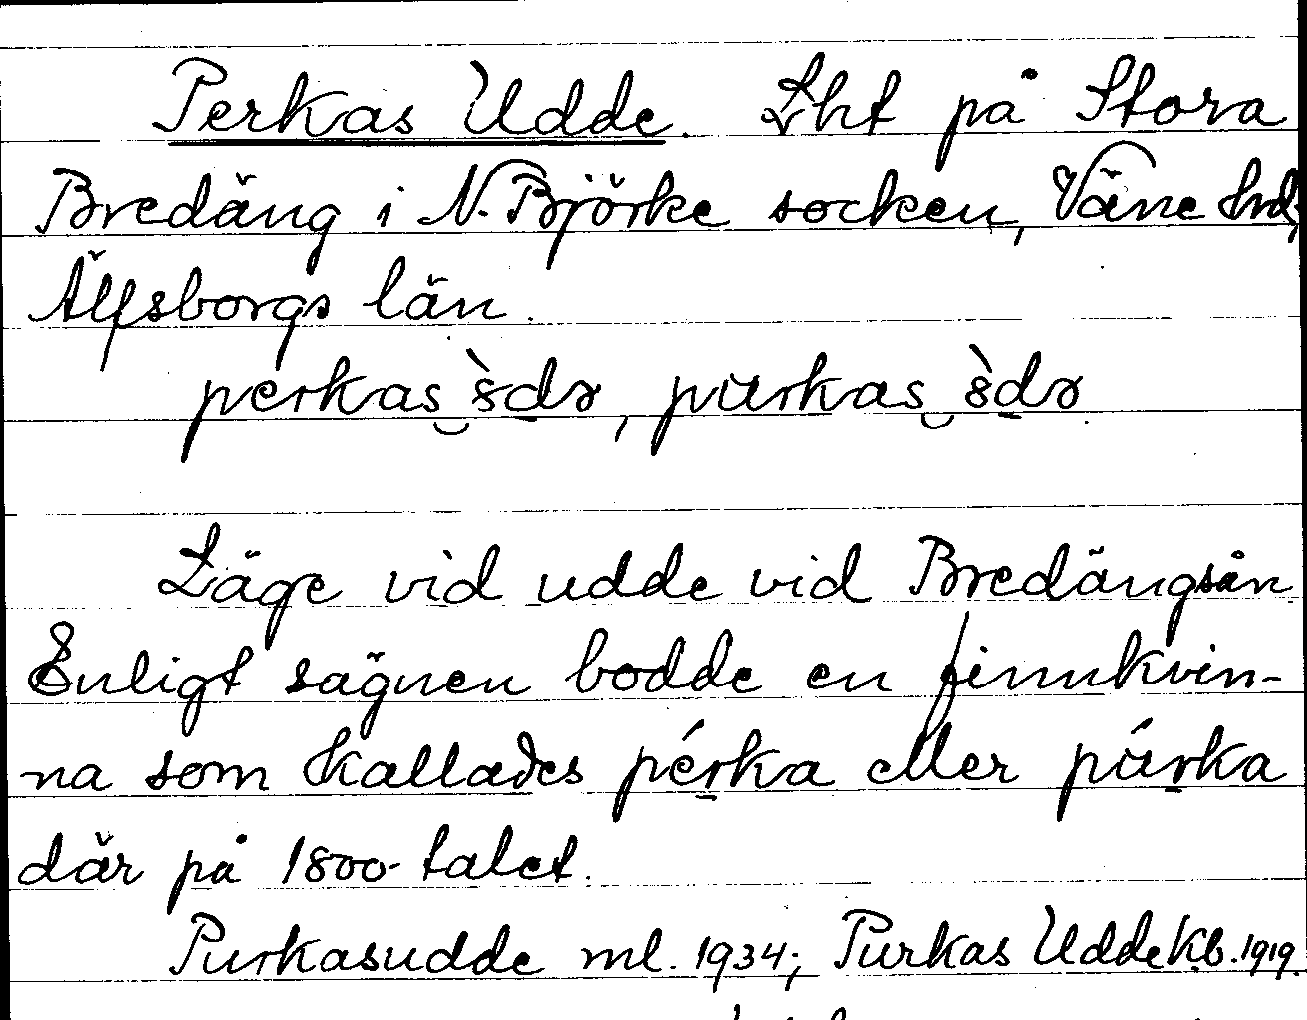 Perkas Udde. Lht på Stora
Bredäng i N. Björke socken, Väne hrd,
Älfsborgs län.
perkas‿s̀dɘ, purkas‿s̀dɘ
Läge vid udde vid Bredängsån
Enligt sägnen bodde en finnkvin-
na som kallades pérka eller púrka
där på 1800-talet.
Purkasudde ml. 1934; Purkas Udde Kb. 1919.